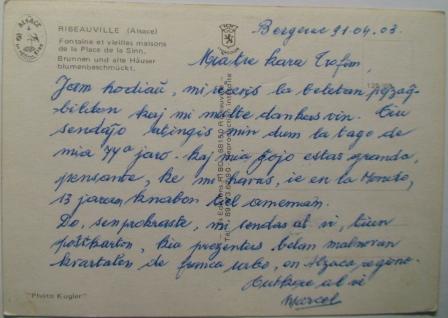 ALSACE
RIBEAUVILLE (Alsace)
Fontaine et vieilles maisons
de la Place de la Sinn.
Brunnen und alte Häuser
blumenbeschmückt.
Bergerac 21.04.03.
Miatre kara Trofim,
Jam hodiaŭ, mi ricevis la beletan pejzaĝ-
bildon kaj mi multe dankas vin. Ĉiu
sendaĵo atingis min dum la tago de
mia 77ª jaro. Kaj mia ĝojo estas granda,
pensante, ke mi havas, ie en la Mondo,
13 jaran knabon tiel aneman.
Do, senprokraste, mi sendas al vi, tiun
poŝtkarton, kiu prezentas belan malnovan
kvartalon de franca urbo, en Alzaca regiono.
al vi
Marcel
"Photo Kugler"